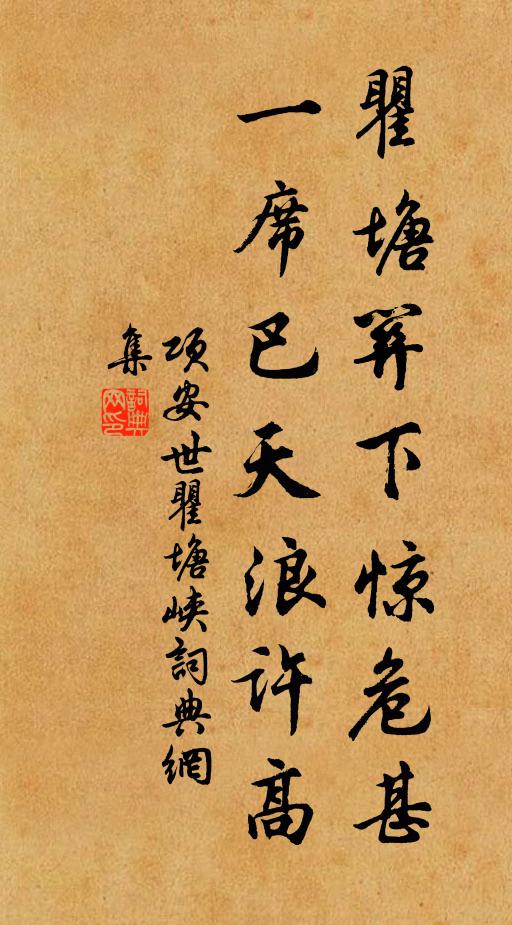 瞿塘羿下惊危甚
一席巴天浪许高
项安世瞿塘峡詞典網
集
詞典网印